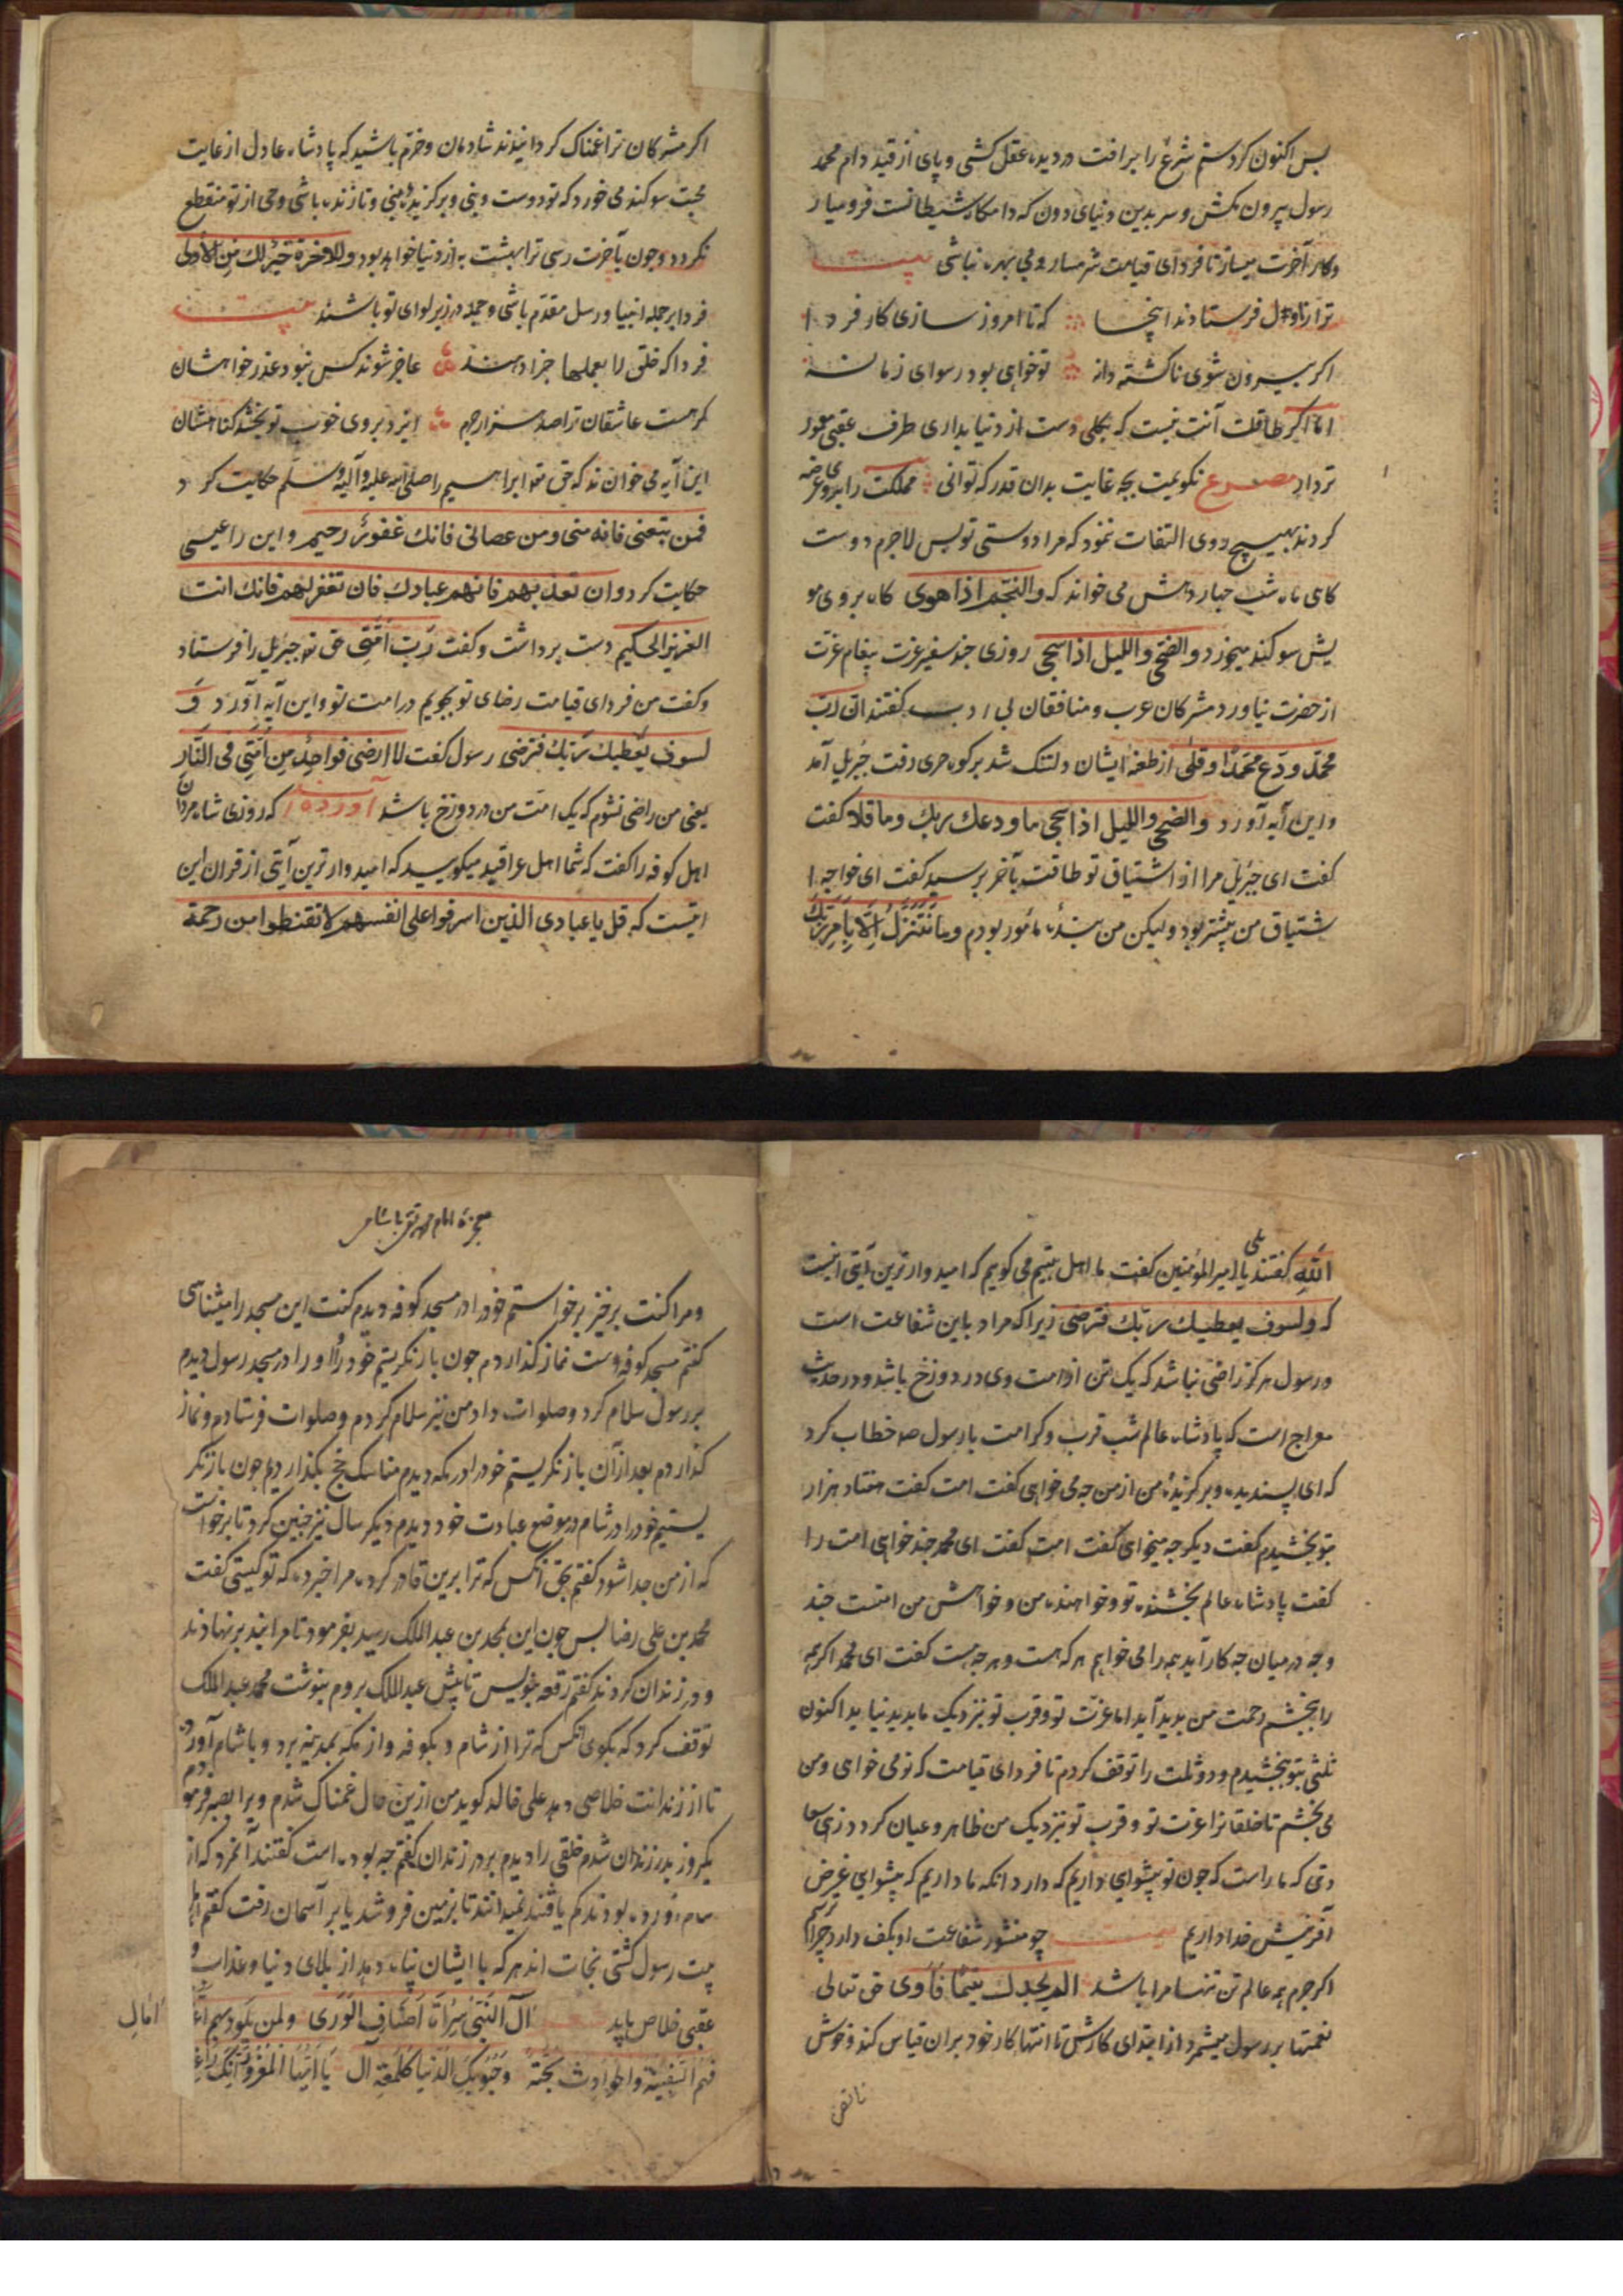 پس اکنون کردستم شرع را برافت دردیده عقل کشی و پای از قید دام محمد
رسول بیرون مکش و سر بدین دنیای دون که دامکاه شیطانست فرومیار
وکار آخرت میساز تا فردای قیامت شرمسار و بی بهره نباشی بیت
ترا ز اول فرستادند اینجا که تا امروز سازی کار فردا
اکر بیرون شوی ناکشته دانه تو خواهی بود رسوای زمانه
اما اکر طاقت آنت نیست که بکلی دست از دنیا بداری طرف عقبی معمور
تر دار مصرع نکویمت بچه غایت بدان قدر که توانی مملکت را بروی عرضه
کردند بهیچ روی التفات ننمود که مرا دوستی تو بس لاجرم دوست
کاه شب جبار دهش می خواند که والنجم اذا هوی کاه بروی مو
یش سوکند میخورد والضحی واللیل اذا سجی روزی چند سفیر عزت پیغام عزت
از حضرت نیاورد مشرکان عرب و منافقان بی ادب کفتند ان رب
محمد ودع محمدا وقلی از طعنه ایشان دلتنک شد برکوه حری رفت جبریل آمد
و این آیه آورد والضحی واللیل اذا سجی ما ودعك ربك وما قلا کفت
کفت ای جبریل مرا از اشتیاق تو طاقت بآخر برسید کفت ای خواجه ا
شتیاق من بیشتر بود ولیکن من بنده مامور بودم وما نتنزل الا بامر ربك
اکر مشرکان ترا غمناک کردانیدند شادمان و خرم باشید که پادشاه عادل از غایت
محبت سوکند می خورد که تو دوست منی و برکزیده منی و تا زنده باشی وحی از تو منقطع
نکردد و چون بآخرت رسی ترا بهشت به از دنیا خواهد بود وللاخرة خیر لك من الاولی
فردا بر جمله انبیا و رسل مقدم باشی و جمله در زیر لوای تو باشند بیت
فردا که خلق را بعملها جزا دهند عاجز شوند کس نبود عذر خواهشان
کر هست عاشقان ترا صد هزار جرم ایزد بروی خوب تو بخشد کناهشان
این آیه می خواندند که حق تع ابراهیم را صلی الله علیه وآله وسلم حکایت کرد
فمن تبعنی فانه منی ومن عصانی فانك غفور رحیم و این را عیسی
حکایت کرد وان تعذبهم فانهم عبادك فان تغفر لهم فانك انت
العزیز الحکیم دست برداشت و کفت رب امتی حق تع جبریل را فرستاد
و کفت من فردای قیامت رضای تو بجویم در امت تو و این آیه آورد و
لسوف یعطیك ربك فترضی رسول کفت لا ارضی فواحد من امتی فی النار
یعنی من راضی نشوم که یک امت من در دوزخ باشد آورده اند که روزی شاه مردان
اهل کوفه را کفت که شما اهل عراقید میکویید که امیدوارترین آیتی از قران این
ایتست که قل یا عبادی الذین اسرفوا علی انفسهم لا تقنطوا من رحمة
الله کفتند بلی یا امیر المؤمنین کفت ما اهل بیتیم می کوییم که امیدوارترین آیتی اینست
که ولسوف یعطیك ربك فترضی زیرا که مراد باین شفاعت است
و رسول هرکز راضی نباشد که یک تن از امت وی در دوزخ باشد و در حدیث
معراج است که پادشاه عالم شب قرب و کرامت با رسول صه خطاب کرد
که ای پسندیده و برکزیده من از من چه می خواهی کفت امت کفت هفتاد هزار
بتو بخشیدم کفت دیکر چه میخوای کفت امت کفت ای محمد چند خواهی امت را
کفت پادشاه عالم بخشنده تو و خواهنده من و خواهش من امتست چند
و چه در میان چه کار آید همه را می خواهم هر که هست و هر چه هست کفت ای محمد اکر همه
را ببخشم رحمت من بدید آید اما عزت تو و قرب تو بنزدیک ما بدید نیاید اکنون
ثلثی بتو بخشیدم و دو ثلث را توقف کردم تا فردای قیامت که تو می خواهی و من
می بخشم تا خلقانرا عزت تو و قرب تو بنزدیک من ظاهر و عیان کردد زهی سعا
دتی که ما راست که چون تو پیشوای داریم که دارد آنکه ما داریم که پیشوای غرض
آفرینش خدا داریم بیت چو منشور شفاعت او بکف دارد چرا ترسم
اکر جرم همه عالم تن تنها مرا باشد الم یجدك یتیما فاوی حق تعالی
نعمتها بر رسول میشمرد از ابتدای کارش تا انتها کار خود بران قیاس کند و خوش
ناقص
معجزه امام محمد تقی با شامی
ومرا کفت برخیز برخواستم خود را در مسجد کوفه دیدم کفت این مسجد را میشناسی
کفتم مسجد کوفه است نماز کذاردم چون باز نکریستم خود را و او را در مسجد رسول دیدم
بر رسول سلام کرد و صلوات داد من نیز سلام کردم و صلوات فرستادم و نماز
کذاردم بعد از آن باز نکریستم خود را در مکه دیدم مناسک حج بکذاردیم چون باز نکر
یستیم خود را در شام در موضع عبادت خود دیدم دیکر سال نیز چنین کرد تا برخواست
که از من جدا شود کفتم بحق آنکس که ترا برین قادر کرده مرا خبر ده که تو کیستی کفت
محمد بن علی رضا پس چون این بمحمد بن عبد الملک رسید بفرمود تا مرا بند بر نهادند
و در زندان کردند کفتم رقعه بنویس تا پیش عبد الملک بروم بنوشت محمد عبد الملک
توقف کرد که بکوی آنکس که ترا از شام بکوفه و از مکه بمدینه برد و باشام آورد
تا از زندانت خلاصی دهد علی خالد کوید من ازین حال غمناک شدم و ویرا بصبر فرمودم
یکروز بدر زندان شدم خلقی را دیدم بر در زندان کفتم چه بوده است کفتند آنمرد که از
شام آورده بودند کم یافتند نمیدانند تا بزمین فرو شد یا بر آسمان رفت کفتم اهل
بیت رسول کشتی نجات اند هر که با ایشان پناه دهد از بلای دنیا و عذاب و
عقبی خلاص یابد آل النبی اصناف الوری ولمن
فهم السفینة والحوادث لجة یا ایها المغرور انك